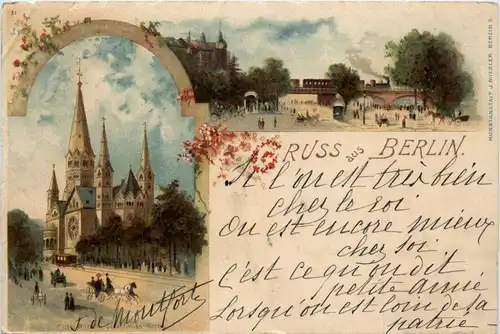 GRUSS aus BERLIN.
KUNSTANSTALT J. MIESLER, BERLIN S.
Si l'on est très bien
chez le roi
On est encore mieux
chez soi
C'est ce qu'on dit
petite amie
Lorsqu'on est loin de sa
patrie
S. de Montfort